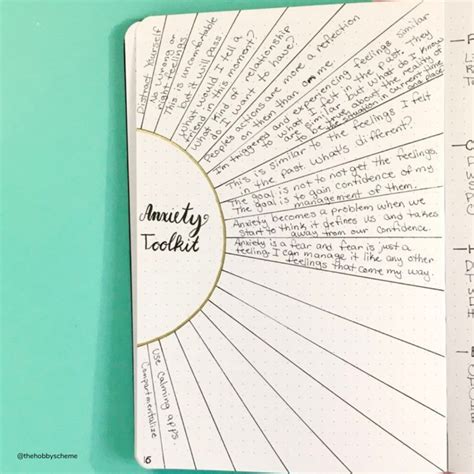 Distract Yourself
do s wrong or
right feelings
This is uncomfortable
but it will pass
What would I tell a
friend in this moment?
What kind of relationship
do I want to have?
People's actions are more a reflection
on them than on me.
I'm triggered and experiencing feelings similar
to what I felt in the past. They
are similar but what do I know
to be true about the reality of
the situation in current time
and place
This is similar to the feelings I felt
in the past. What's different?
The goal is not to not get the feelings,
The goal is to gain confidence of my
management of them.
Anxiety becomes a problem when we
start to think it defines us and takes
away from our confidence.
Anxiety is a fear and fear is just a
feeling. I can manage it like any other
feelings that come my way.
Anxiety
Toolkit
Use calming apps.
Compartmentalize
16
@thehobbyscheme